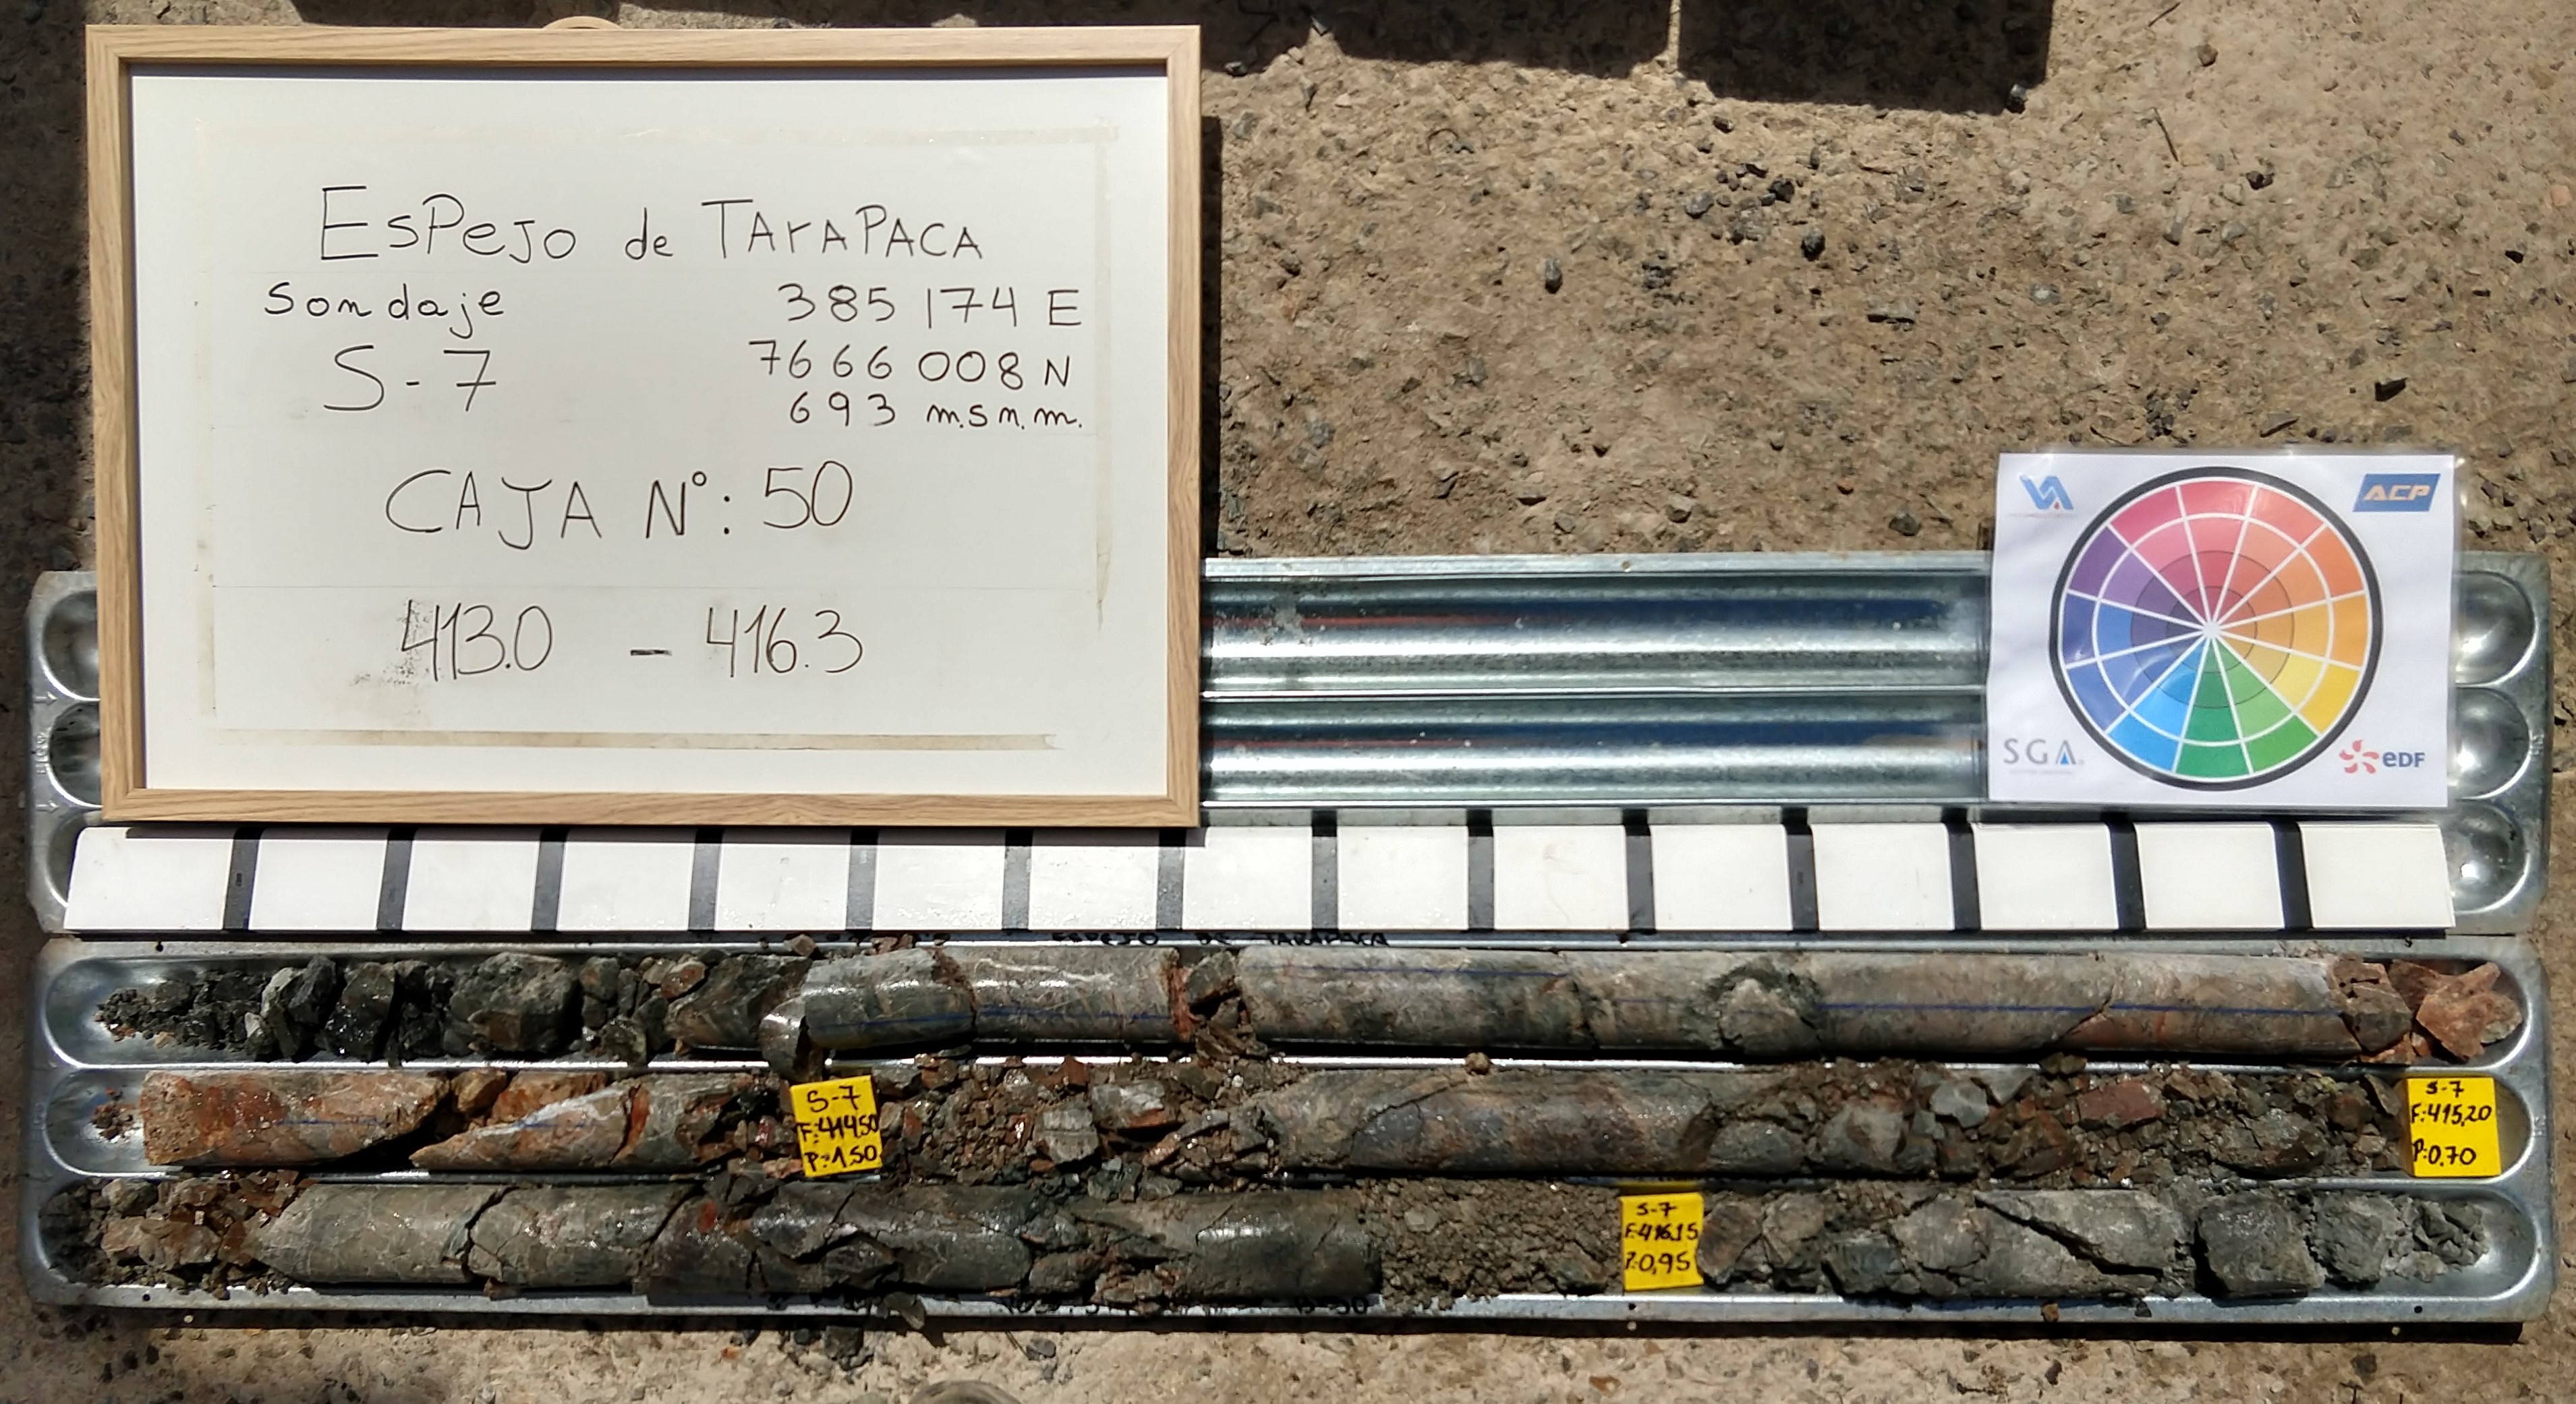 ESPEJO de TArAPACA
Sondaje
385 174 E
S-7
7666 008 N
693 m.s.n.m.
CAJA N°: 50
413.0 - 416.3
ACP
SGA
eDF
ESPEJO DE TARAPACA
S-7
F:414.50
P:1.50
S-7
F:415,20
P:0.70
S-7
F:416.15
P:0,95